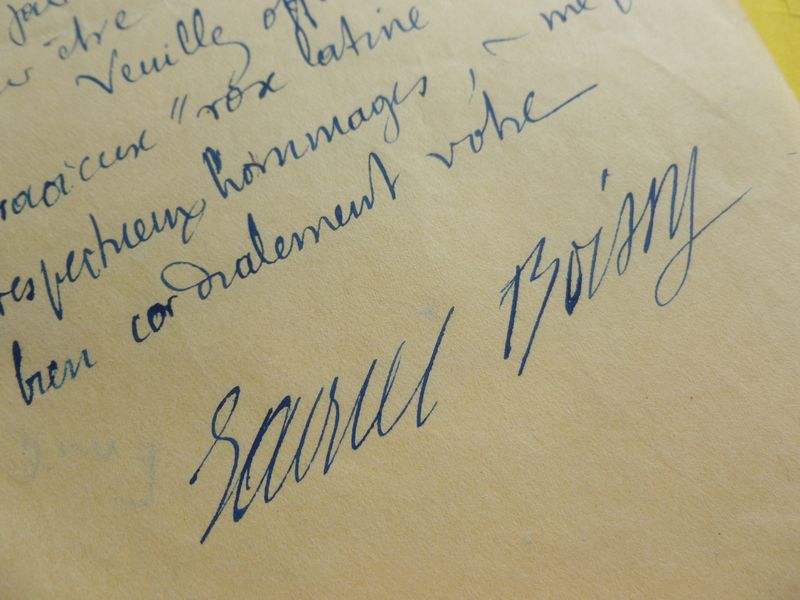 être
Veuillez
"rose latine
respectueux hommages, – me
bien cordialement vôtre
Gabriel Boissy